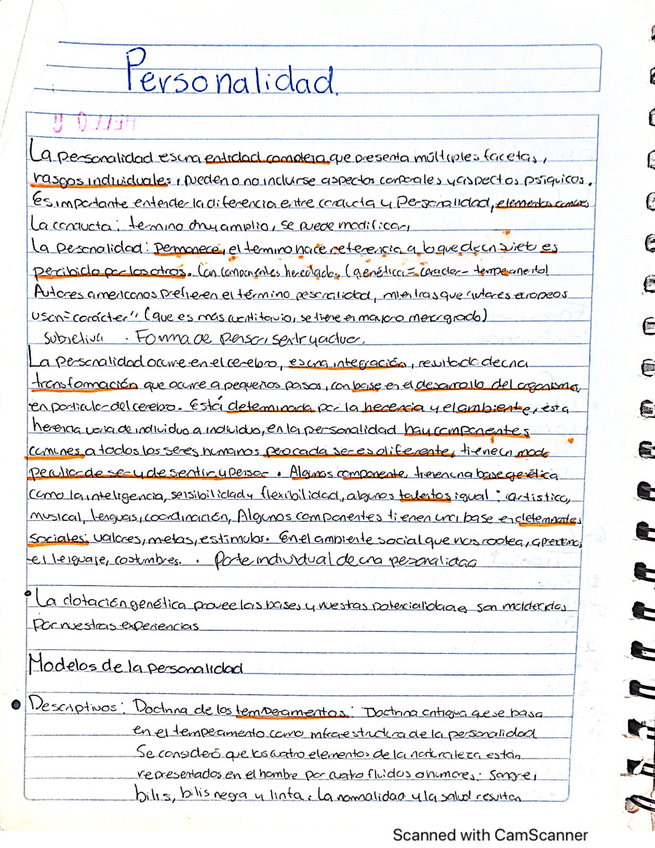 Personalidad.
HELLO
La personalidad es una entidad compleja que presenta múltiples facetas,
rasgos individuales, pueden o no incluirse aspectos corporales y aspectos psíquicos.
Es importante entender la diferencia entre conducta y Personalidad, elementos comunes
La conducta: termino muy amplio, se puede modificar,
la Personalidad: Permanece, el término hace referencia a lo que de un sujeto es
percibido por los otros. Con componentes heredados, (genética = caracter - temperamento)
Autores americanos prefieren el término personalidad, mientras que autores europeos
usan "carácter" (que es mas cuantitativo, se tiene en mayor o menor grado)
Subjetiva . Forma de pensar, sentir y actuar.
La personalidad ocurre en el cerebro, es una integración, resultado de una
transformación que ocurre a pequeños pasos, con base en el desarrollo del organismo,
en particular del cerebro. Está determinada por la herencia y el ambiente, esta
herencia varia de individuo a individuo, en la personalidad hay componentes
comunes a todos los seres humanos pero cada ser es diferente, tiene un modo
peculiar de ser y de sentir y pensar. Algunos componente, tienen una base genética
como la inteligencia, sensibilidad y flexibilidad, algunos talentos igual: artistico,
musical, lenguas, coordinación, Algunos componentes tienen una base en determinantes
sociales: valores, metas, estimulos. En el ambiente social que nos rodea,
el lenguaje, costumbres. . Parte individual de una personalidad
La dotación genética provee las bases y nuestras potencialidades son moldeadas
por nuestras experiencias
Modelos de la personalidad
Descriptivos: Doctrina de los temperamentos: Doctrina antigua que se basa
en el temperamento como infraestructura de la personalidad
Se consideró que los cuatro elementos de la naturaleza están
representados en el hombre por cuatro fluidos o humores: sangre,
bilis, bilis negra y linfa. La normalidad y la salud resultan
Scanned with CamScanner